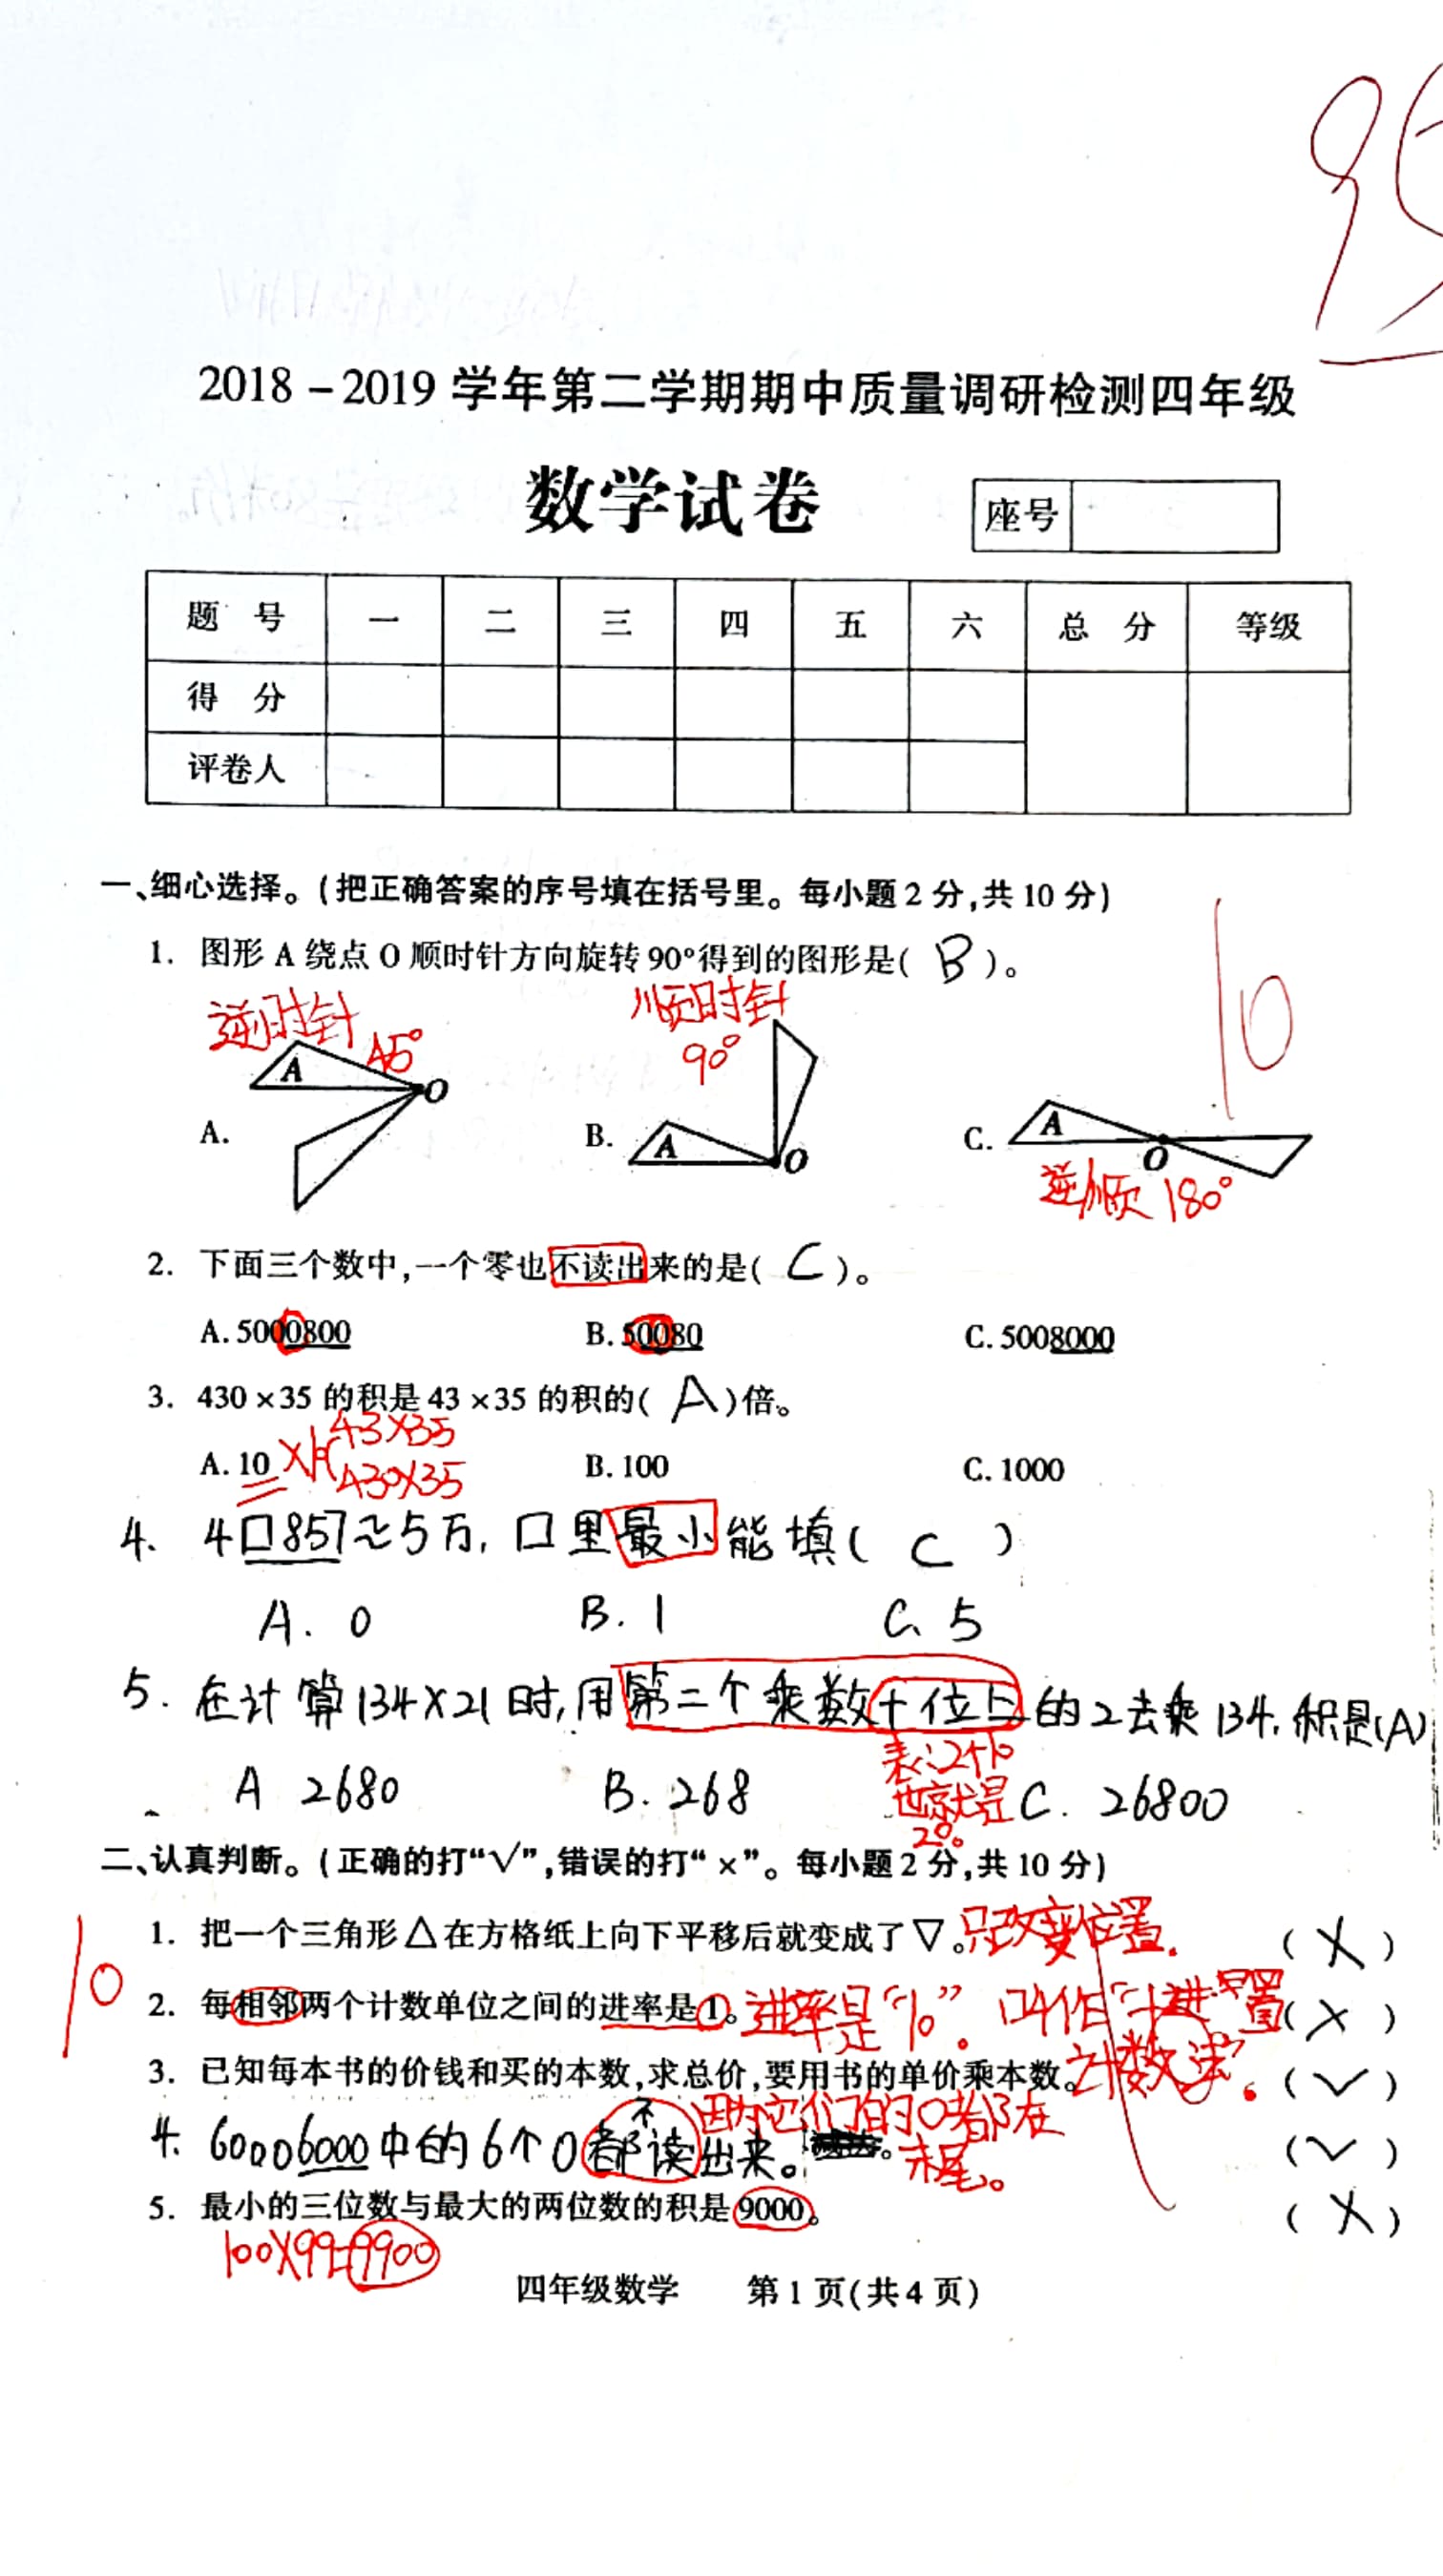 2018-2019学年第二学期期中质量调研检测四年级
数学试卷
座号
题 号 一 二 三 四 五 六 总 分 等级
得 分
评卷人
一、细心选择。(把正确答案的序号填在括号里。每小题2分,共10分)
10
1. 图形A绕点O顺时针方向旋转90°得到的图形是( B )。
逆时针 45°
顺时针 90°
A. A O
B. A O
C. A O
逆/顺 180°
2. 下面三个数中,一个零也不读出来的是( C )。
A. 5000800 B. 50080 C. 5008000
3. 430×35的积是43×35的积的( A )倍。
43×35
A. 10 B. 100 C. 1000
430×35
4. 4口857≈5万,口里最小能填( C )
A. 0 B. 1 C. 5
5. 在计算134×21时,用第二个乘数十位上的2去乘134,积是(A)
表示2个10
也就是
20。
A 2680 B. 268 C. 26800
二、认真判断。(正确的打“√”,错误的打“×”。每小题2分,共10分)
10
1. 把一个三角形△在方格纸上向下平移后就变成了▽。只改变位置. ( × )
2. 每相邻两个计数单位之间的进率是1。进率是“10”。叫作“十进 ( × )
计数法”。
3. 已知每本书的价钱和买的本数,求总价,要用书的单价乘本数。 ( √ )
4. 60006000中的6个0都不读出来。 ( √ )
因为它们的0都在
末尾。
5. 最小的三位数与最大的两位数的积是9000。 ( × )
100×99=9900
四年级数学 第1页(共4页)